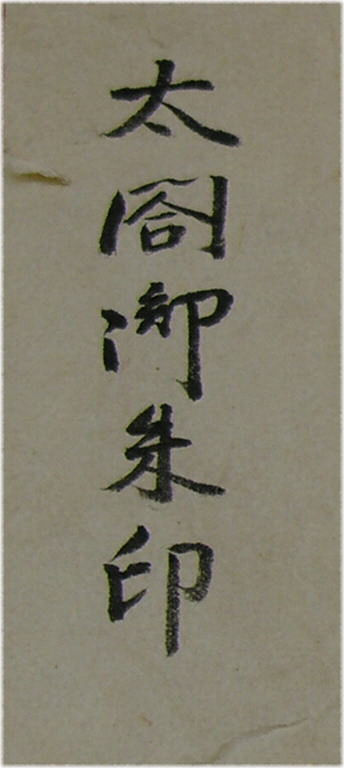 太閤御朱印